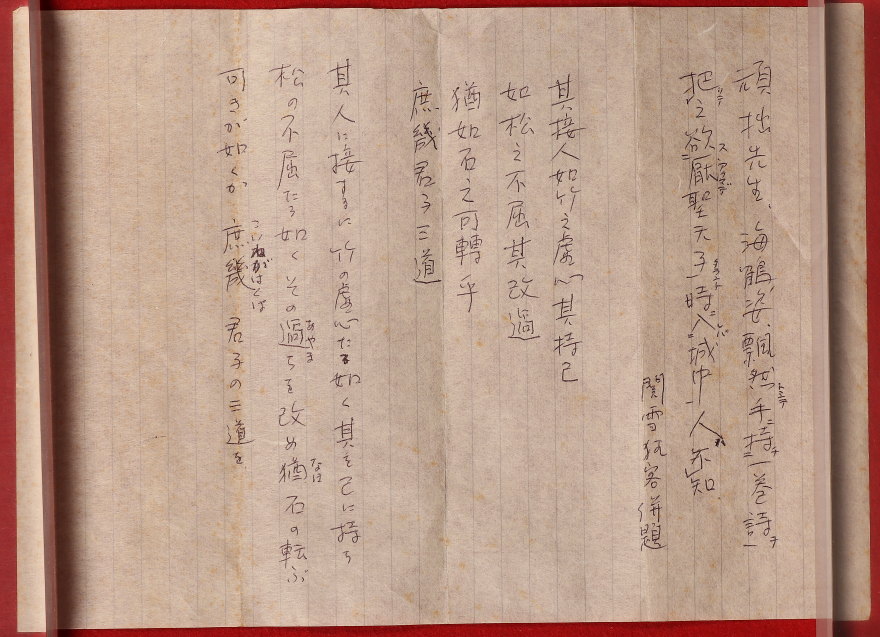 頑拙先生、海鶴姿、飄然手持一巻詩
把之欲献聖天子時入城中人不知
関雪狂客併題
其接人如竹之虚心其持己
如松之不屈其改過
猶如石之可轉乎
庶幾君子三道
其人に接するに竹の虚心たる如く其を己に持ち
松の不屈たる如くその過ちを改め猶石の転ぶ
可きが如くか庶幾君子の三道を